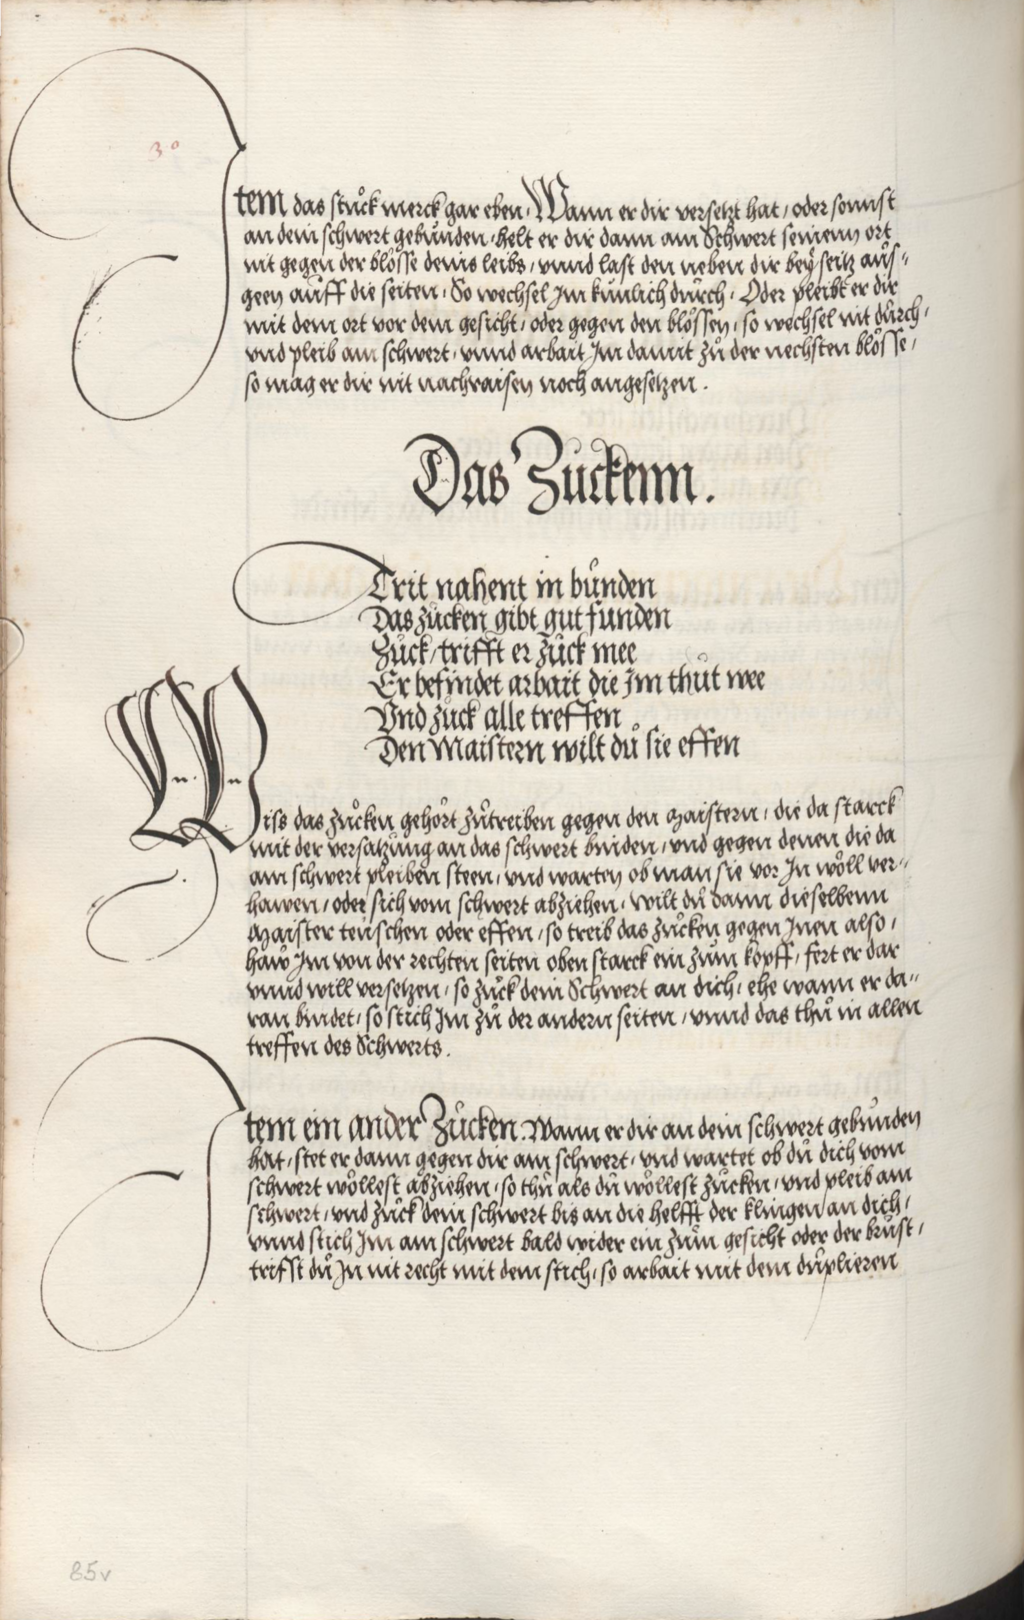 3°
Item das stuck merck gar eben, Wann er dir versetzt hat, oder sonnst
an dein schwert gebunden, helt er dir dann am Schwert seinenn ort
nit gegen der blösse deins leibs, vnnd last den neben dir bey seitz aus-
geen auff die seiten, So wechsel Jm künlich durch, Oder pleibt er dir
mit dem ort vor dem gesicht, oder gegen den blössen, so wechsel nit durch,
vnd pleib am schwert, vnnd arbait Jm damit zu der nechsten blösse,
so mag er dir nit nachraisen noch angesetzen.
Das Zuckenn.
Trit nahent in bunden
Das zucken gibt gut funden
Zuck, trifft er zuck mee
Er befindet arbait die Jm thut wee
Vnd zuck alle treffen
Den Maistern wilt du sie effen
Wiss das zucken gehört zutreiben gegen den maistern, die da starck
mit der versatzung an das schwert binden, vnd gegen denen die da
am schwert pleiben steen, vnd warten ob man sie vor Jn wöll ver-
hawen, oder sich vom schwert abziehen, wilt du dann dieselbenn
maister teuschen oder effen, so treib das zucken gegen Jnen also,
haw Jm von der rechten seiten oben starck ein zum kopff, fert er dar
vnnd will versetzen, so zuck dein Schwert an dich, ehe wann er da-
ran bindet, so stich Jm zu der andern seiten, vnnd das thu in allen
treffen des Schwerts.
Item ein ander Zucken. Wann er dir an dein schwert gebunden
hat, stet er dann gegen dir am schwert, vnd wartet ob du dich vom
schwert wöllest abziehen, so thu als du wöllest zucken, vnd pleib am
schwert, vnd zuck dein schwert bis an die helfft der klingen an dich,
vnnd stich Jm am schwert bald wider ein zum gesicht oder der brust,
triffst du Jn nit recht mit dem stich, so arbait mit dem duplieren
85v